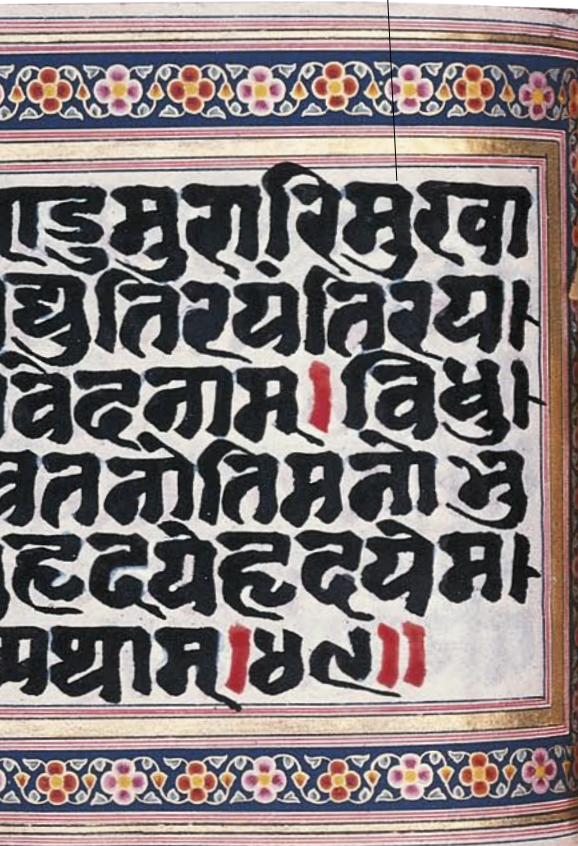 ण्डुमुरारिमुखा
द्युतिरयंतिरय।
वेदनाम्।विधु।
वतनोतिमनोभु
हृदयेहृदयेम।
व्यथाम्।४९॥